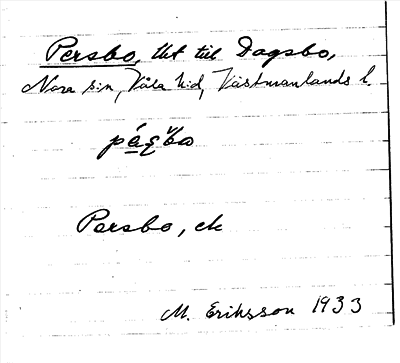 Persbo, lht till Dagsbo,
Nora sn, Våla hd, Västmanlands l.
Persbo, ek
M. Eriksson 1933